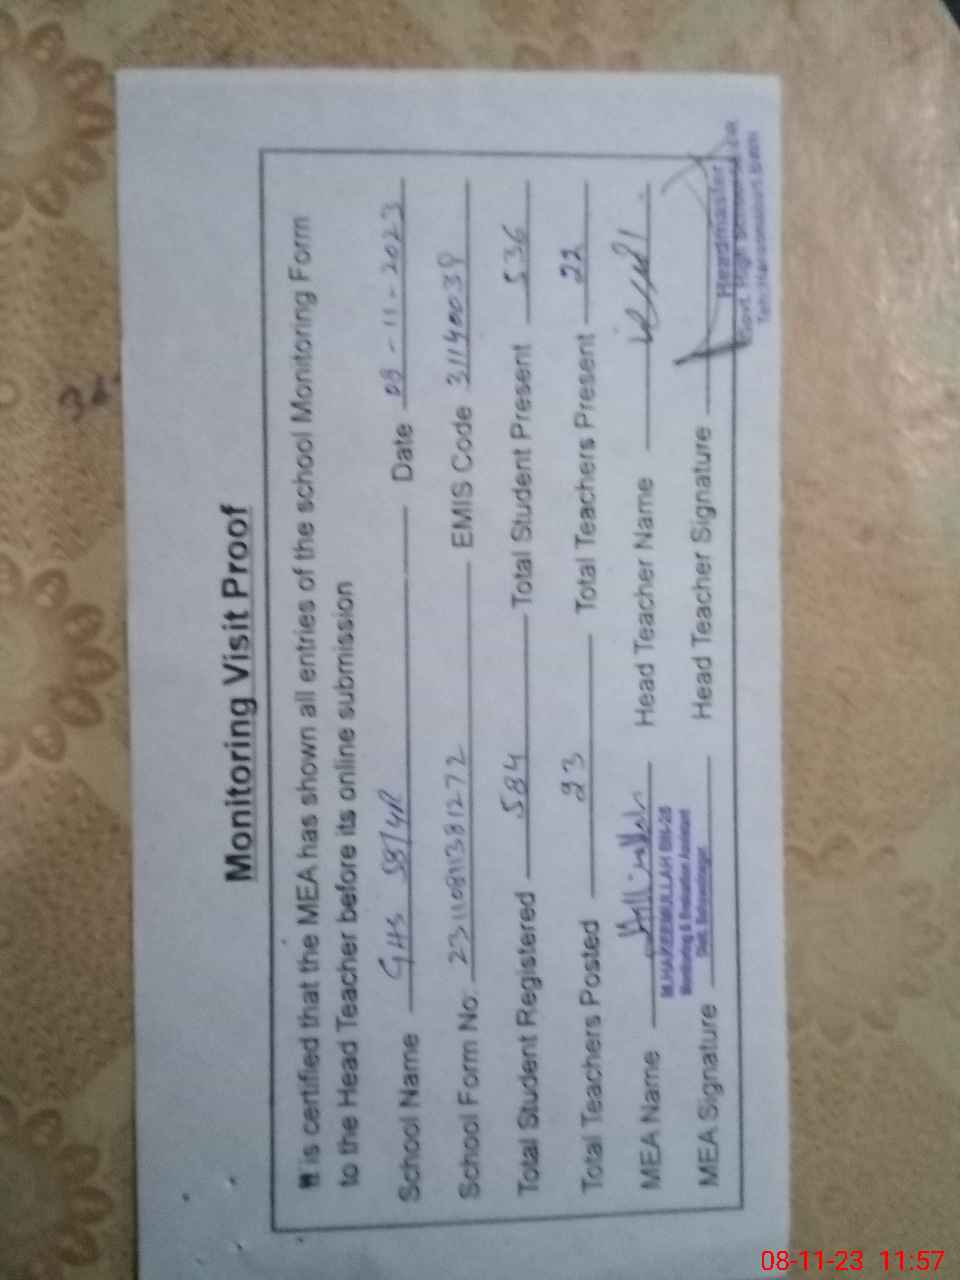 Monitoring Visit Proof
It is certified that the MEA has shown all entries of the school Monitoring Form
to the Head Teacher before its online submission
School Name GHS 58/4R Date 08-11-2023
School Form No. 2311081381272 EMIS Code 31140039
Total Student Registered 584 Total Student Present 536
Total Teachers Posted 23 Total Teachers Present 22
MEA Name Head Teacher Name
M.HAKEEMULLAH BN-26
Monitoring & Evaluation Assistant
Distt. Bahawalnagar
MEA Signature Head Teacher Signature
Headmaster
Govt. High School
08-11-23 11:57